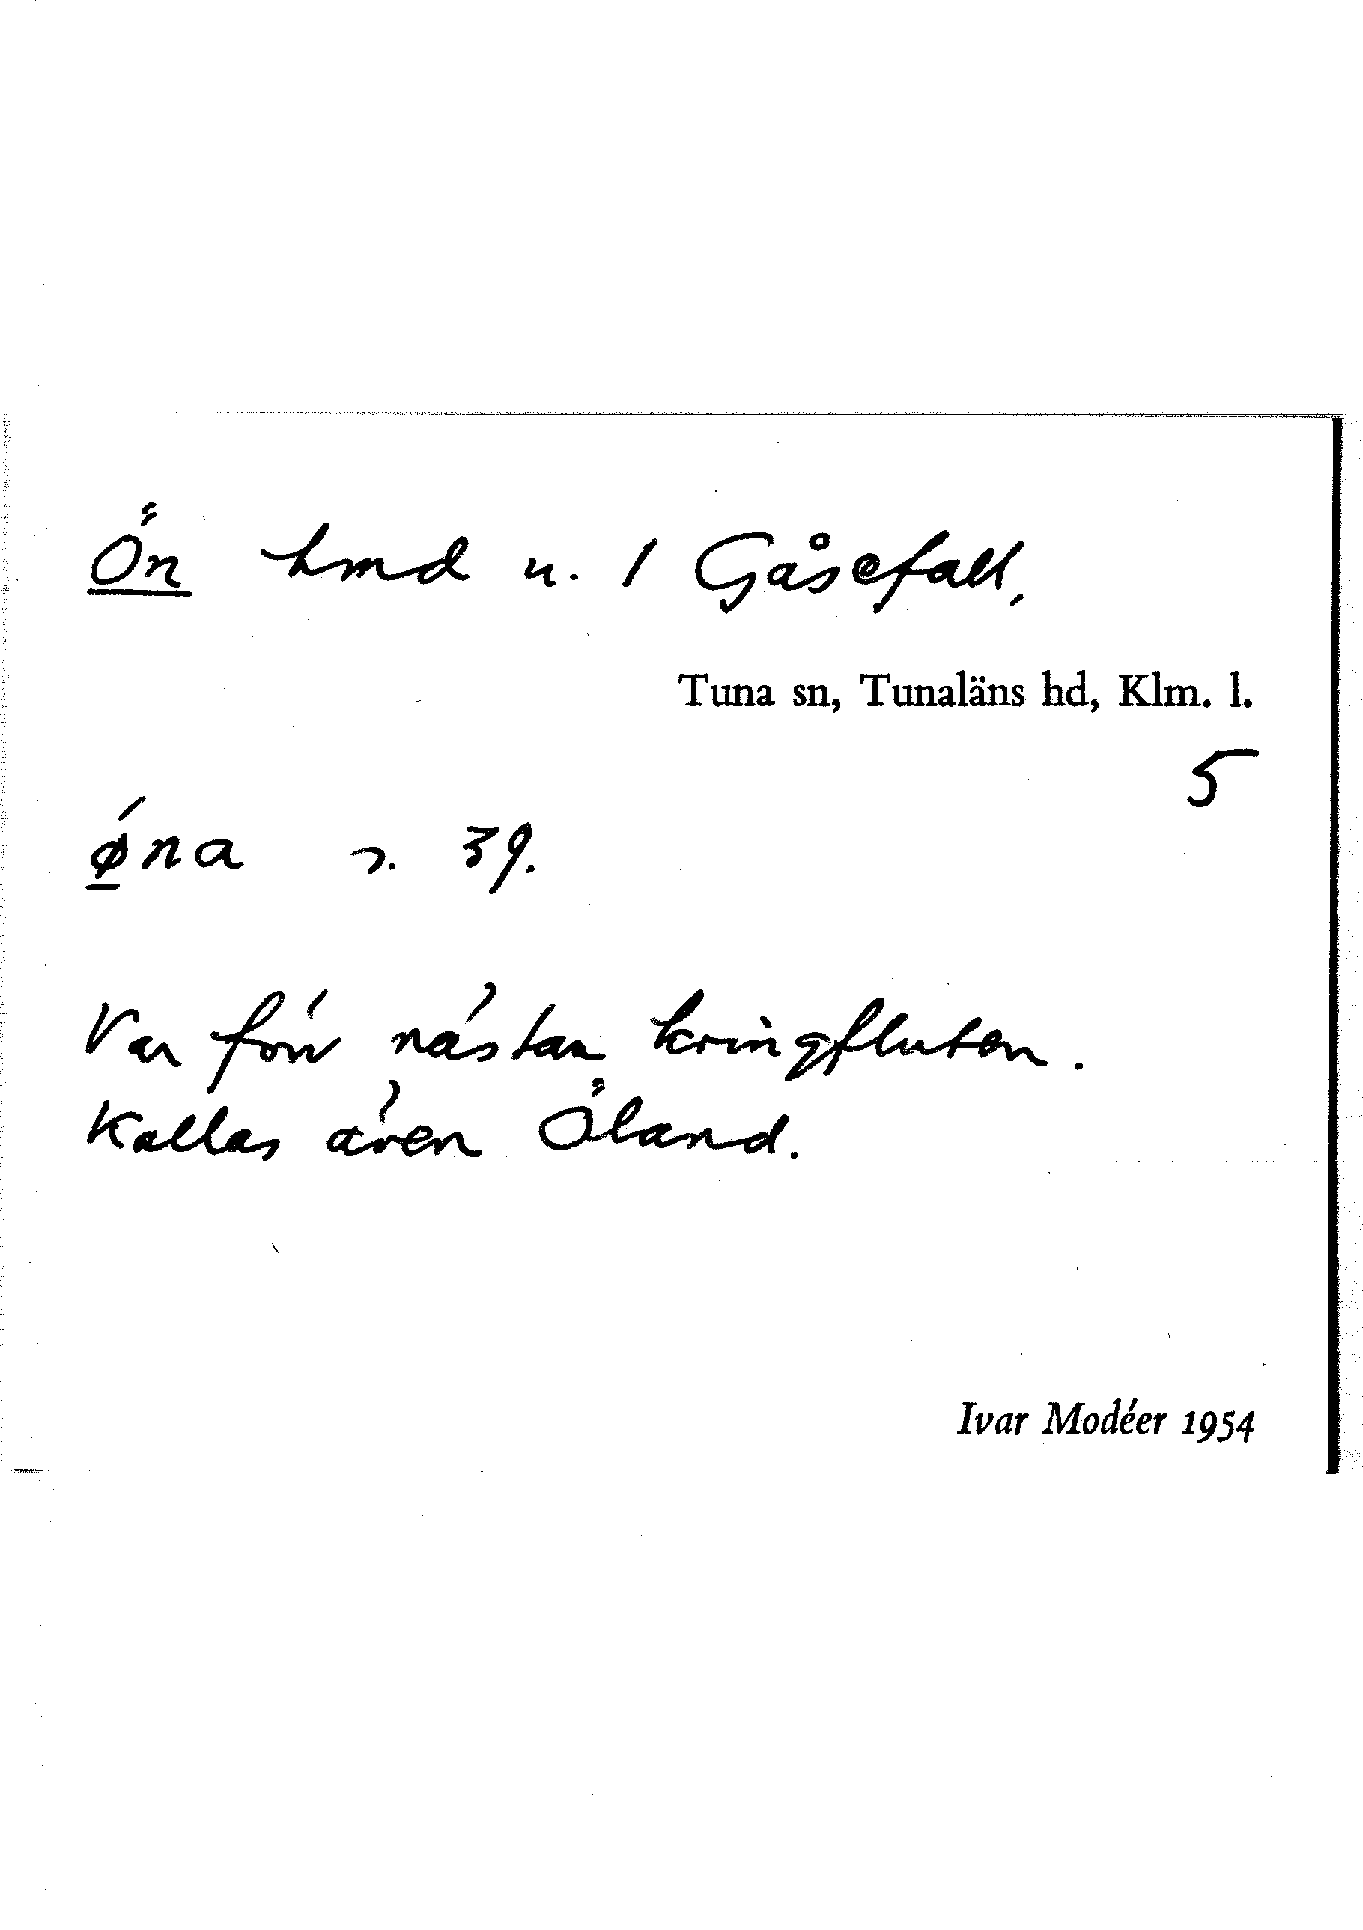 Ön hmd u. 1 Gåsefall,
Tuna sn, Tunaläns hd, Klm. l.
5
ǿna s. 39.
Var förr nästan kringfluten.
Kallas även Öland.
Ivar Modéer 1954